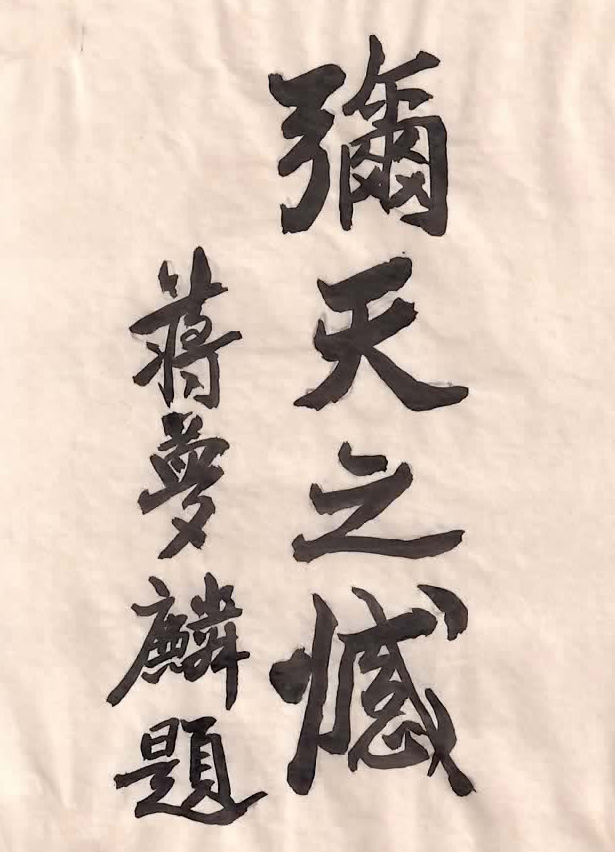 彌天之憾
蔣夢麟題